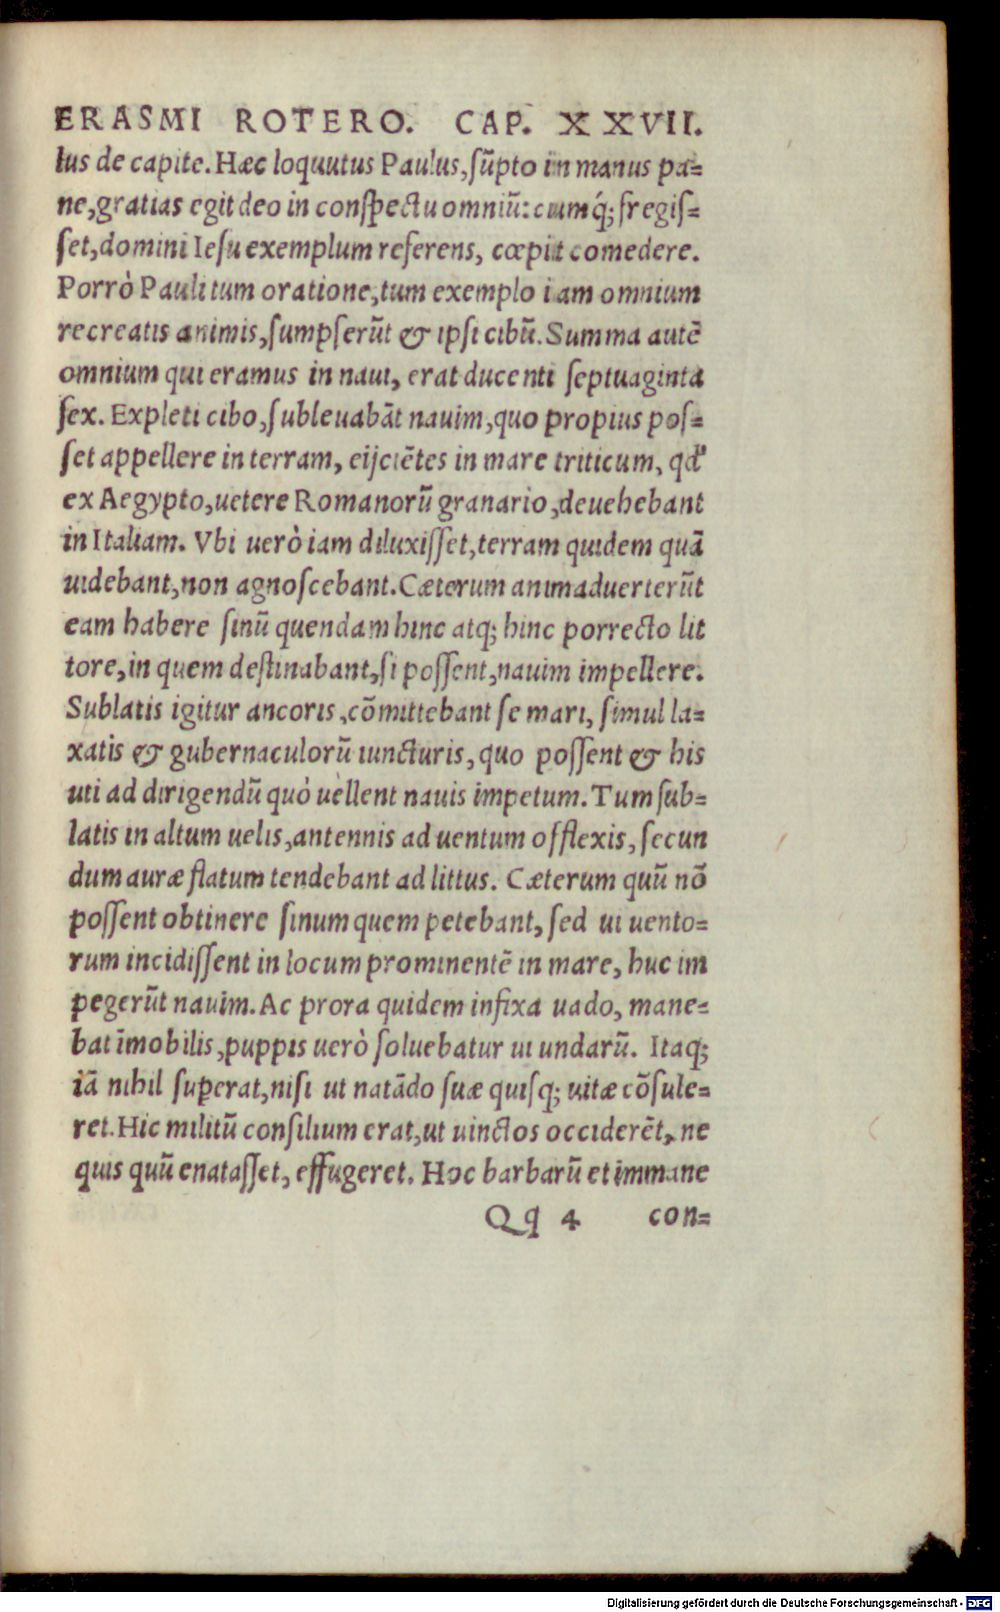 ERASMI ROTERO. CAP. XXVII.
lus de capite. Hæc loquutus Paulus, sũpto in manus pa=
ne, gratias egit deo in conspectu omniũ: cumq́; fregis=
set, domini Iesu exemplum referens, cœpit comedere.
Porrò Pauli tum oratione, tum exemplo iam omnium
recreatis animis, sumpserũt & ipsi cibũ. Summa autẽ
omnium qui eramus in naui, erat ducenti septuaginta
sex. Expleti cibo, subleuabãt nauim, quo propius pos=
set appellere in terram, eijciẽtes in mare triticum, qď
ex Aegypto, uetere Romanorũ granario, deuehebant
in Italiam. Vbi uerò iam diluxisset, terram quidem quã
uidebant, non agnoscebant. Cæterum animaduerterũt
eam habere sinũ quendam hinc atq; hinc porrecto lit
tore, in quem destinabant, si possent, nauim impellere.
Sublatis igitur ancoris, cõmittebant se mari, simul la=
xatis & gubernaculorũ iuncturis, quo possent & his
uti ad dirigendũ quò uellent nauis impetum. Tum sub=
latis in altum uelis, antennis ad uentum offlexis, secun
dum auræ flatum tendebant ad littus. Cæterum quũ nõ
possent obtinere sinum quem petebant, sed ui uento=
rum incidissent in locum prominentẽ in mare, huc im
pegerũt nauim. Ac prora quidem infixa uado, mane=
bat ĩmobilis, puppis uerò soluebatur ui undarũ. Itaq;
iã nihil superat, nisi ut natãdo suæ quisq; uitæ cõsule=
ret. Hic militũ consilium erat, ut uinctos occiderẽt, ne
quis quũ enatasset, effugeret. Hoc barbarũ et immane
Qq 4 con=
Digitalisierung gefördert durch die Deutsche Forschungsgemeinschaft - DFG